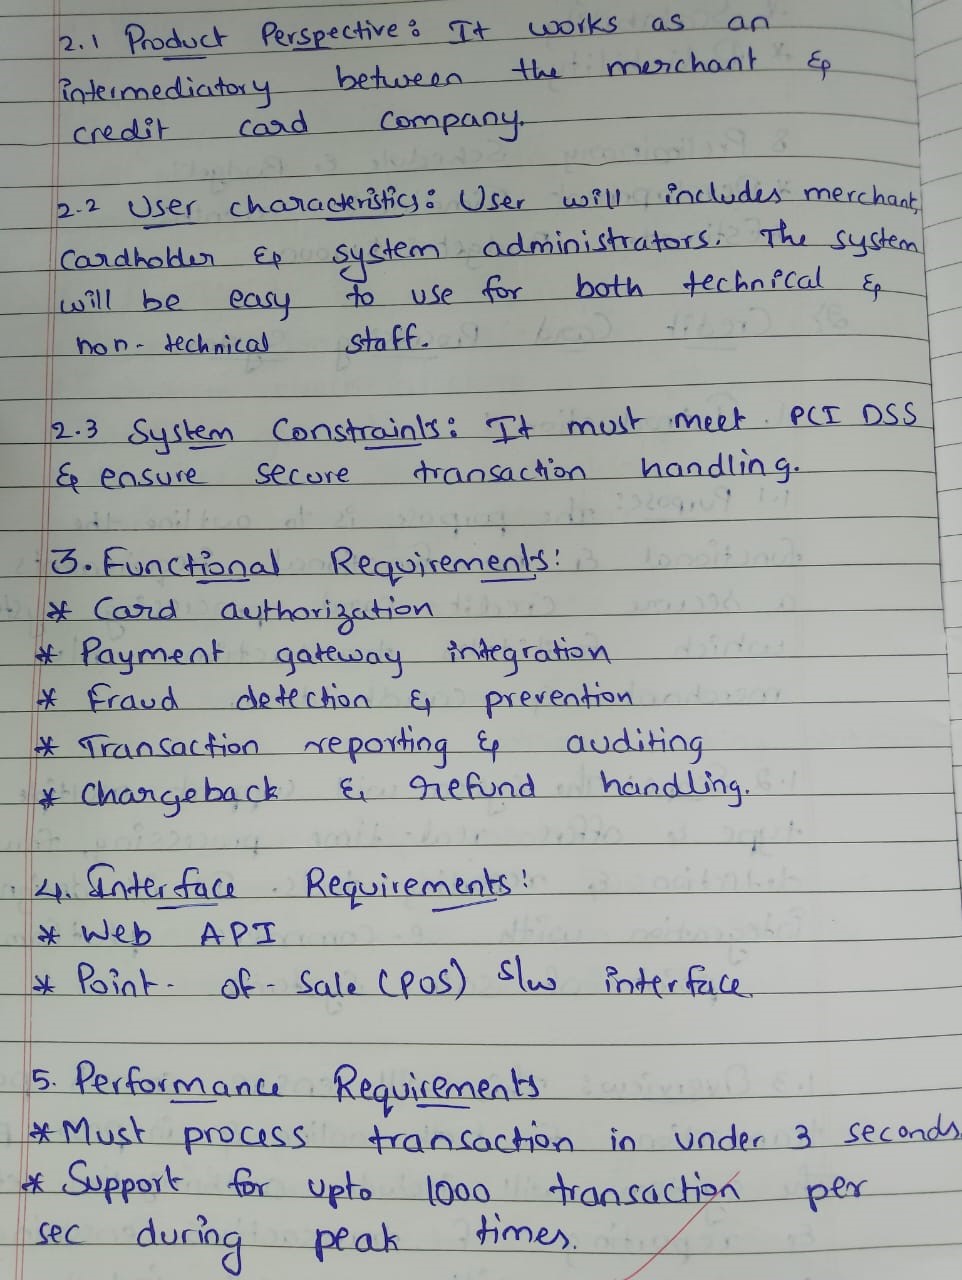 2.1 Product Perspective: It works as an
intermediatory between the merchant &
credit card company.
2.2 User characteristics: User will includes merchant,
Cardholder & system administrators. The system
will be easy to use for both technical &
non-technical staff.
2.3 System Constraints: It must meet PCI DSS
& ensure secure transaction handling.
3. Functional Requirements:
* Card authorization
* Payment gateway integration
* Fraud detection & prevention
* Transaction reporting & auditing
* Chargeback & refund handling.
4. Interface Requirements:
* Web API
* Point-of-Sale (POS) s/w interface
5. Performance Requirements
* Must process transaction in under 3 seconds
* Support for upto 1000 transaction per
sec during peak times.